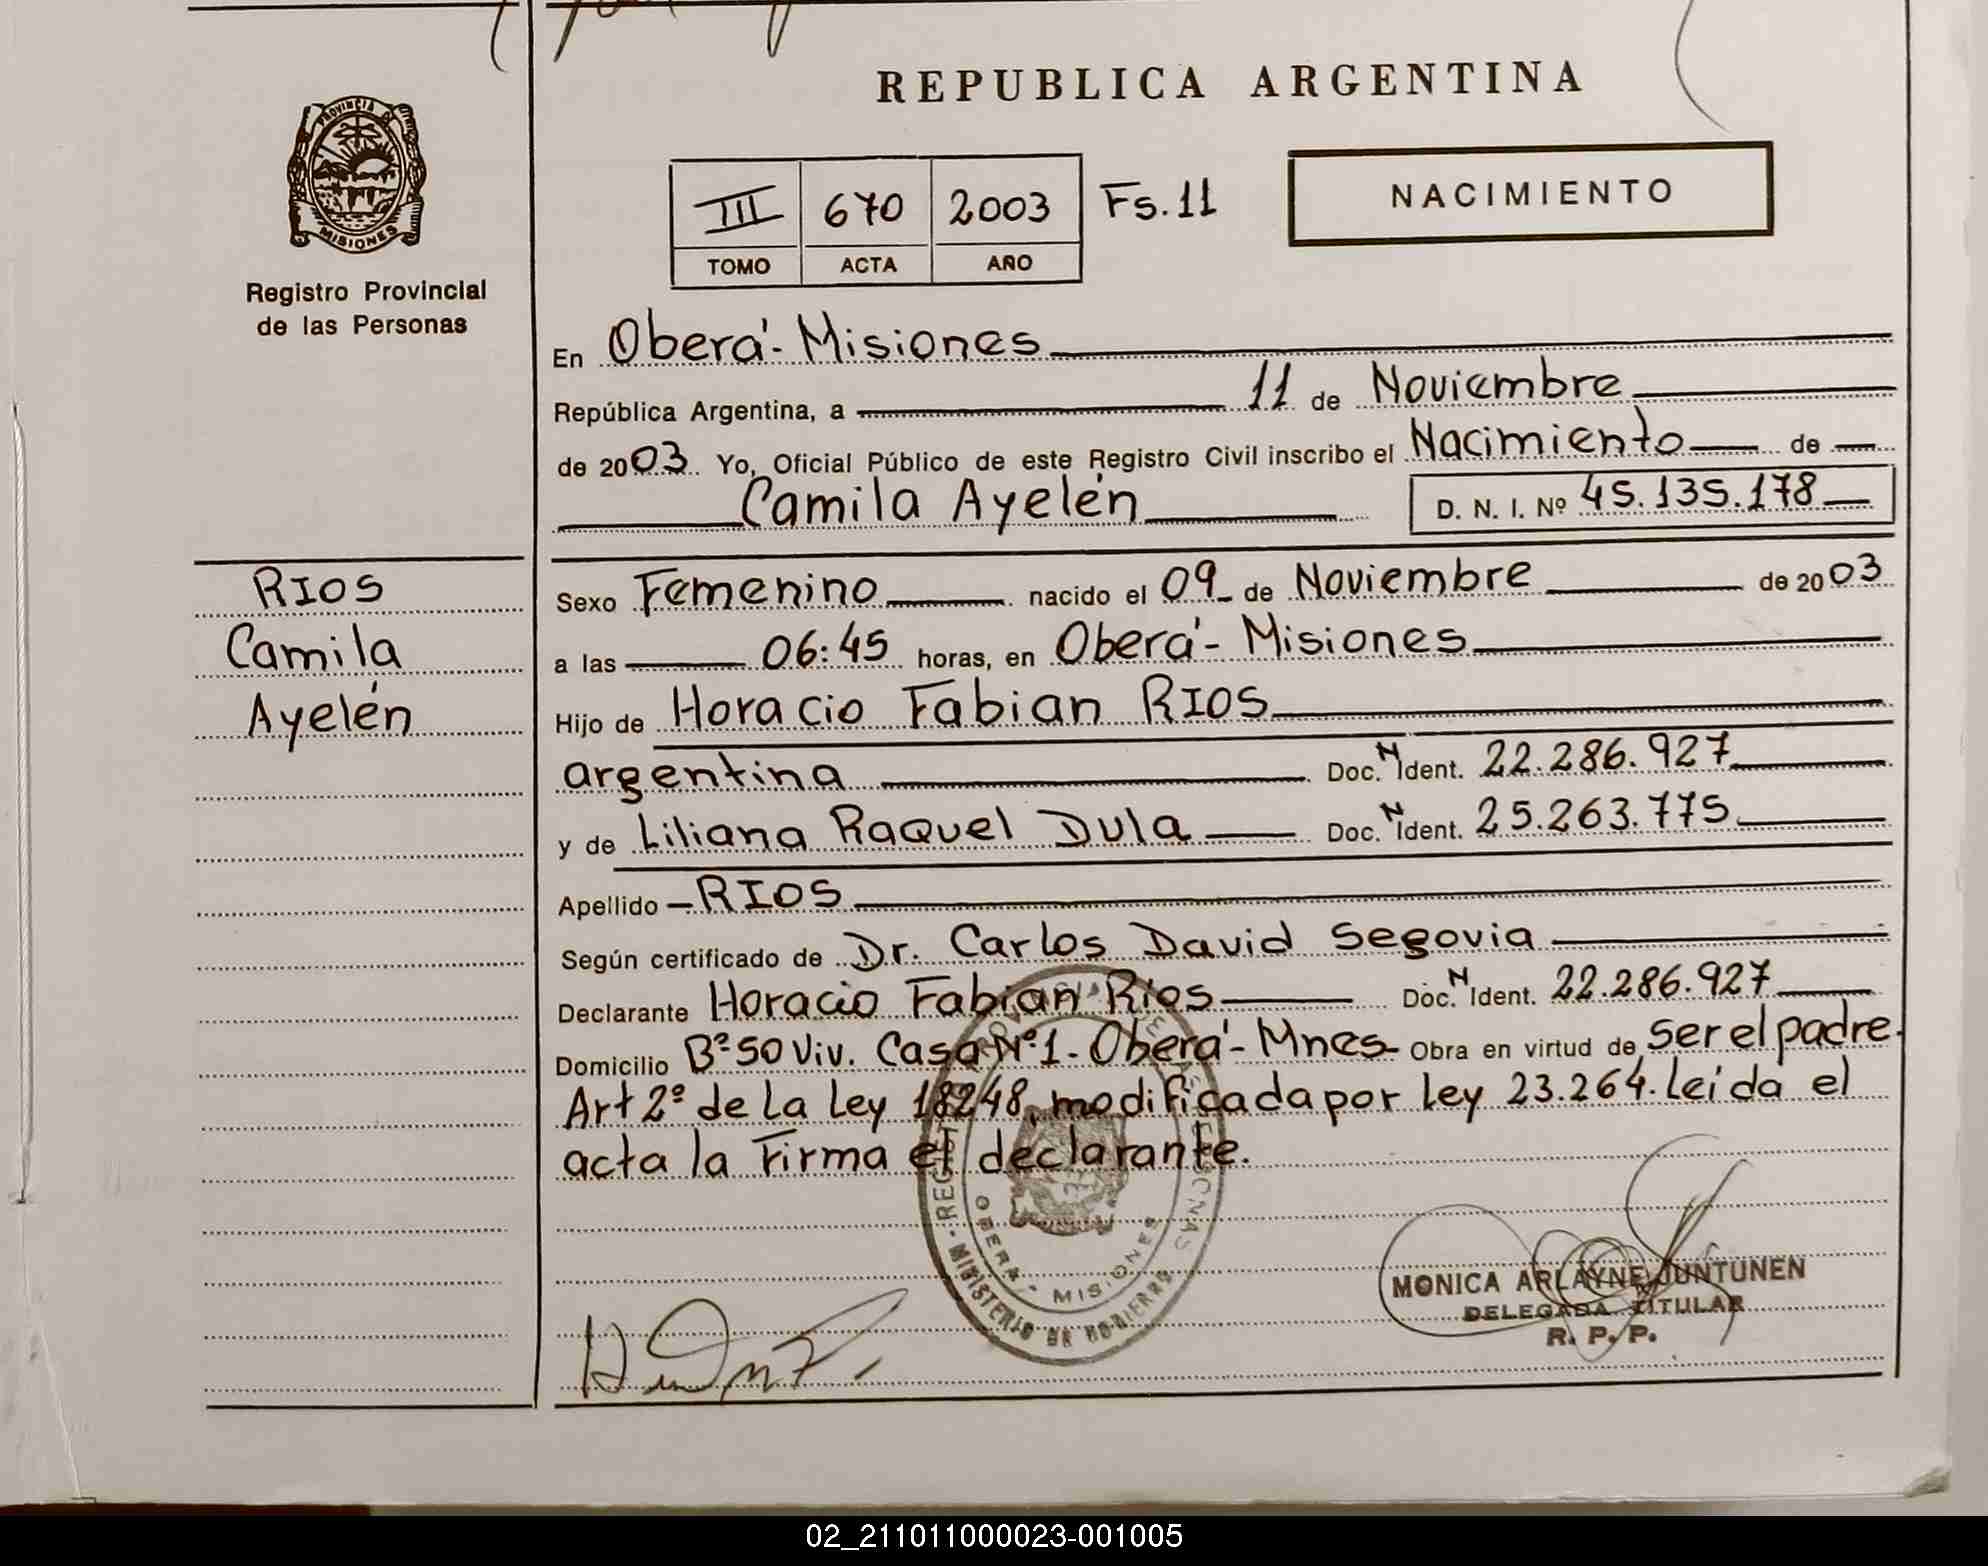 REPUBLICA ARGENTINA
PROVINCIA DE
MISIONES
Registro Provincial
de las Personas
III 670 2003 Fs.11
TOMO ACTA AÑO
NACIMIENTO
En Oberá-Misiones
República Argentina, a 11 de Noviembre
de 2003 Yo, Oficial Público de este Registro Civil inscribo el Nacimiento de
Camila Ayelén D. N. I. Nº 45.135.178
RIOS
Camila
Ayelén
Sexo Femenino nacido el 09 de Noviembre de 2003
a las 06:45 horas, en Oberá- Misiones
Hijo de Horacio Fabian RIOS
argentina Doc. N Ident. 22.286.927
y de Liliana Raquel Dula Doc. N Ident. 25.263.775
Apellido RIOS
Según certificado de Dr. Carlos David Segovia
Declarante Horacio Fabian Rios Doc. N Ident. 22.286.927
Domicilio Bº 50 Viv. Casa Nº1- Oberá- Mnes- Obra en virtud de ser el padre.
Art 2º de la Ley 18248, modificada por ley 23.264. Leida el
acta la Firma el declarante.
OBERA - MISIONES
MINISTERIO DE GOBIERNO
MONICA ARLAYNE JUNTUNEN
DELEGADA TITULAR
R. P. P.
02_211011000023-001005